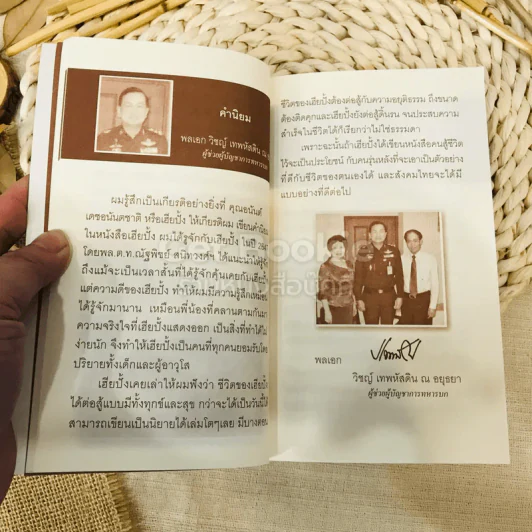 คำนิยม
พลเอก วิชญ์ เทพหัสดิน ณ อ
ผู้ช่วยผู้บัญชาการทหารบก
ผมรู้สึกเป็นเกียรติอย่างยิ่งที่ คุณอนันต์
เดชอนันตชาติ หรือเฮียปั้ง ให้เกียรติผม เขียนคำนิยม
ในหนังสือเฮียปั้ง ผมได้รู้จักกับเฮียปั้ง ในปี
โดยพล.ต.ท.ณัฐพิชย์ สนิทวงศ์ฯ ได้แนะนำให้รู้จัก
ถึงแม้จะเป็นเวลาสั้นที่ได้รู้จักคุ้นเคยกับเฮียปั้ง
แต่ความดีของเฮียปั้ง ทำให้ผมมีความรู้สึกเหมือน
ได้รู้จักมานาน เหมือนพี่น้องที่คลานตามกันมา
ความจริงใจที่เฮียปั้งแสดงออก เป็นสิ่งที่ทำได้ไม่
ง่ายนัก จึงทำให้เฮียปั้งเป็นคนที่ทุกคนยอมรับโดย
ปริยายทั้งเด็กและผู้อาวุโส
เฮียปั้งเคยเล่าให้ผมฟังว่า ชีวิตของเฮียปั้ง
ได้ต่อสู้แบบมีทั้งทุกข์และสุข กว่าจะได้เป็นวันนี้ได้
สามารถเขียนเป็นนิยายได้เล่มโตๆเลย มีบางตอน
ชีวิตของเฮียปั้งต้องต่อสู้กับความอยุติธรรม ถึงขนาด
ต้องติดคุกและเฮียปั้งยังต่อสู้ดิ้นรน จนประสบความ
สำเร็จในชีวิตได้ก็เรียกว่าไม่ใช่ธรรมดา
เพราะฉะนั้นถ้าเฮียปั้งได้เขียนหนังสือคนสู้ชีวิต
ไว้จะเป็นประโยชน์ กับคนรุ่นหลังที่จะเอาเป็นตัวอย่าง
ที่ดีกับชีวิตของตนเองได้ และสังคมไทยจะได้มี
แบบอย่างที่ดีต่อไป
พลเอก
วิชญ์ เทพหัสดิน ณ อยุธยา
ผู้ช่วยผู้บัญชาการทหารบก